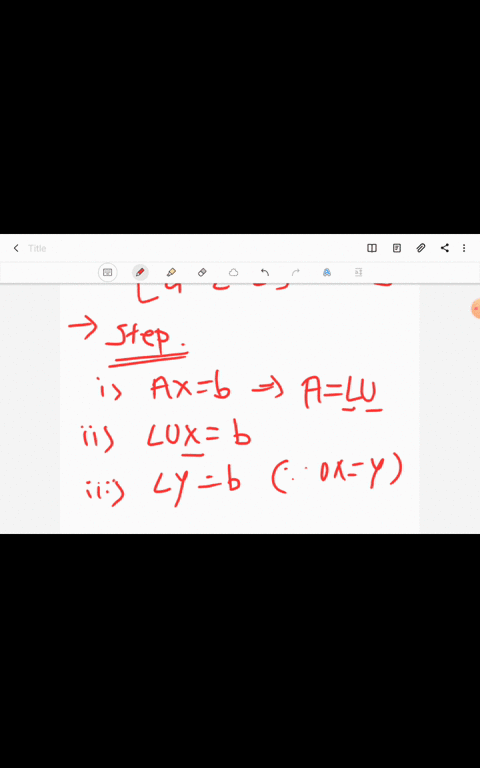 Title
→ Step.
i) AX=b => A=LU
ii) LUX=b
iii) LY=b (∵ UX=Y)